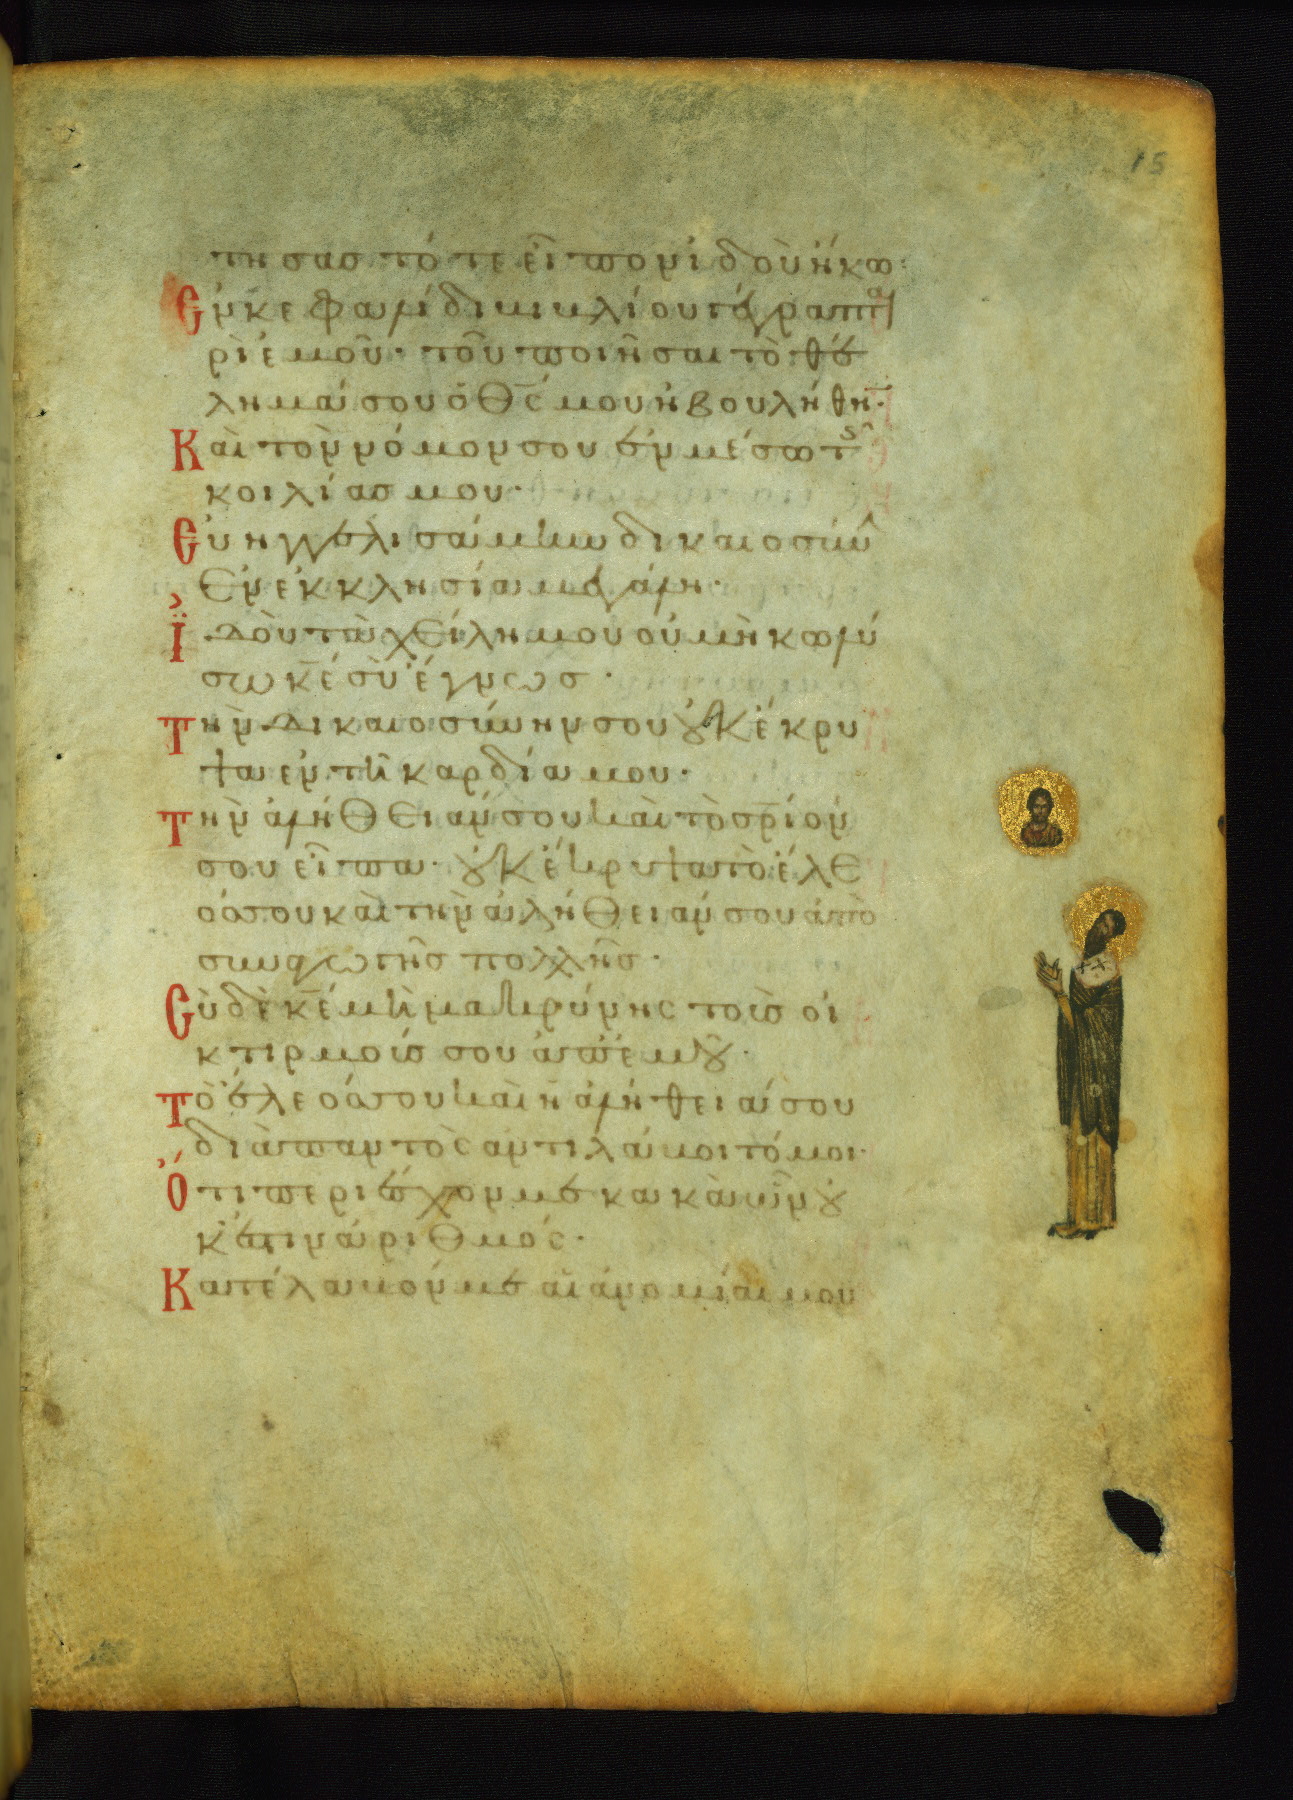 15
τησας τότε εἶπον ἰδοὺ ἥκω·
Ἐν κεφαλίδι βιβλίου γέγραπται
περὶ ἐμοῦ· τοῦ ποιῆσαι τὸ θέ
λημά σου ὁ θς μου ἠβουλήθην·
Καὶ τὸν νόμον σου ἐν μέσω τῆς
κοιλίας μου·
Εὐηγγελισάμην δικαιοσύνην
ἐν ἐκκλησία μεγάλη·
Ἰδοὺ τὰ χείλη μου οὐ μὴ κωλύ
σω κε σὺ ἔγνως·
Τὴν δικαιοσύνην σου οὐκ ἔκρυ
ψα ἐν τῆ καρδία μου·
Τὴν ἀλήθειάν σου καὶ τὸ σριόν
σου εἶπα· οὐκ ἔκρυψα τὸ ἔλε
ός σου καὶ τὴν ἀλήθειάν σου ἀπὸ
συναγωγῆς πολλῆς·
Σὺ δὲ κε μὴ μακρύνης τοὺς οἰ
κτιρμούς σου ἀπ' ἐμοῦ·
Τὸ ἔλεός σου καὶ ἡ ἀλήθειά σου
διὰ παντὸς ἀντιλάβοιντό μου·
Ὅτι περιέσχον με κακὰ ὧν οὐ
κ ἔστιν ἀριθμός·
Κατέλαβόν με αἱ ἀνομίαι μου